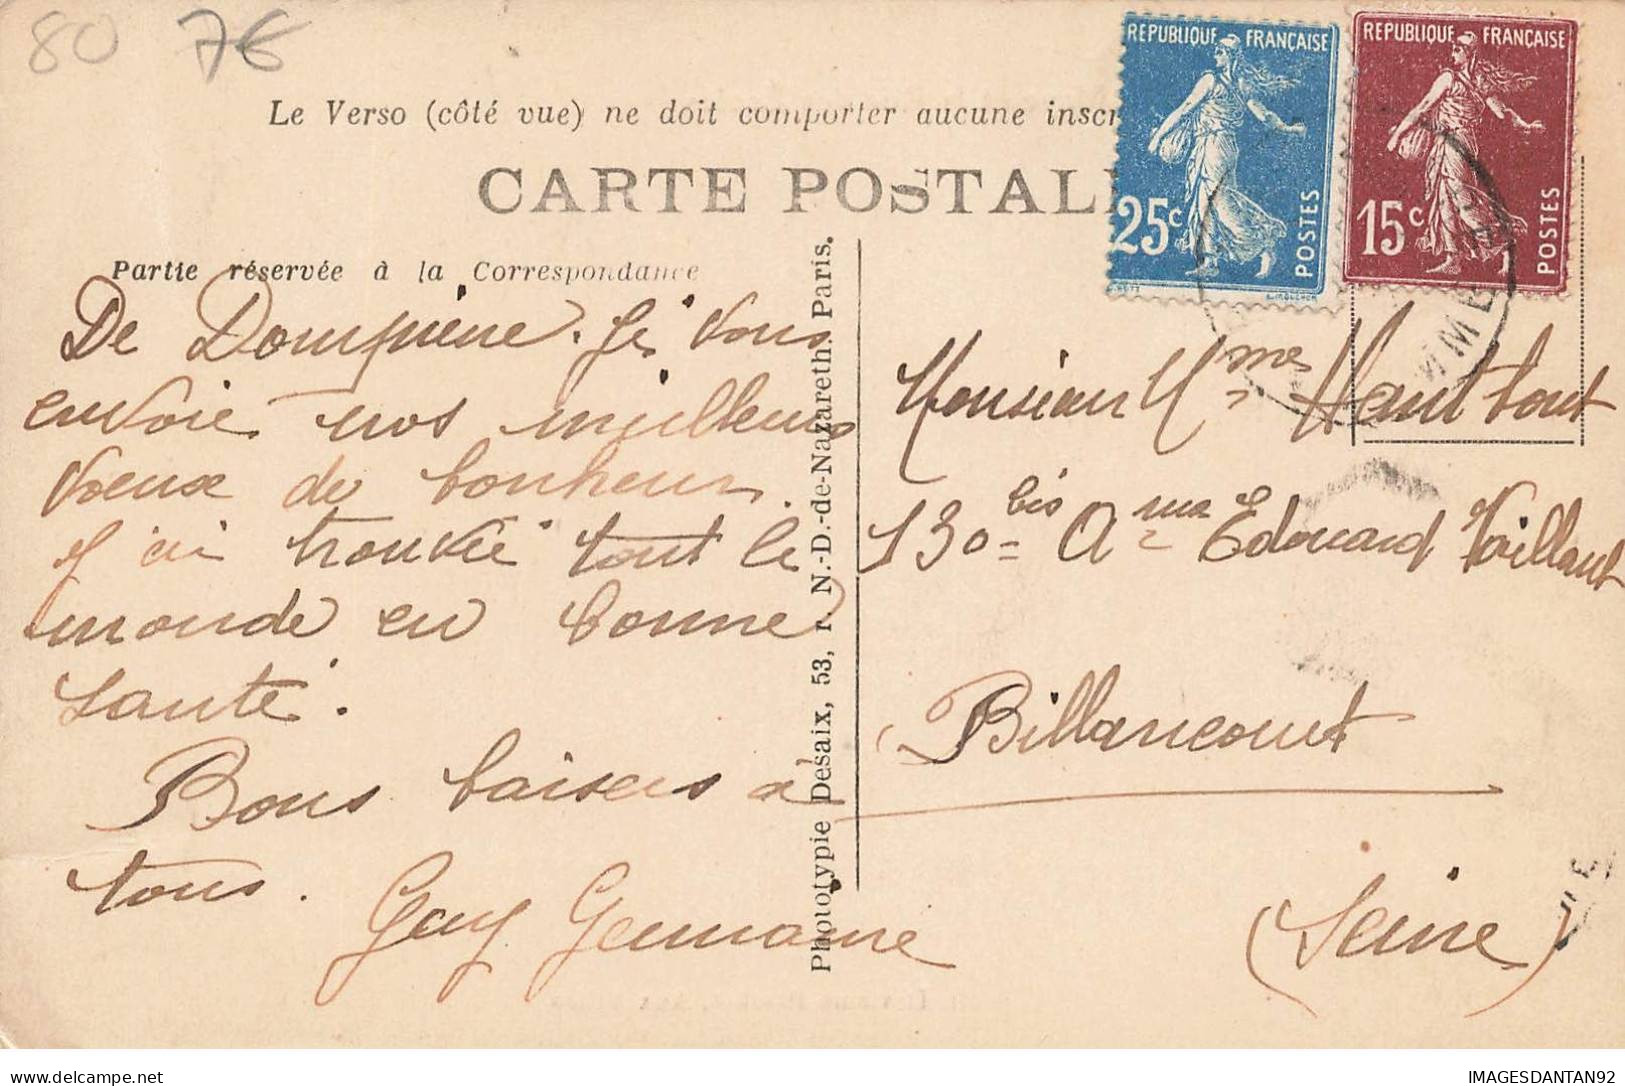 80 7€
Le Verso (côté vue) ne doit comporter aucune inscr
CARTE POSTAL
Partie réservée à la Correspondance
REPUBLIQUE FRANÇAISE
25c
POSTES
REPUBLIQUE FRANÇAISE
15c
POSTES
De Dompierre. Je vous
envoie nos meilleurs
voeux de bonheur.
J'ai trouvée tout le
monde en bonne
santé.
Bons baisers à
tous.
Guy Germaine
Phototypie Desaix, 53, r. N.-D.-de-Nazareth. Paris.
Monsieur Mme
130 bis Edouard Vaillant
Billancourt
(Seine)
IMAGESDANTAN92